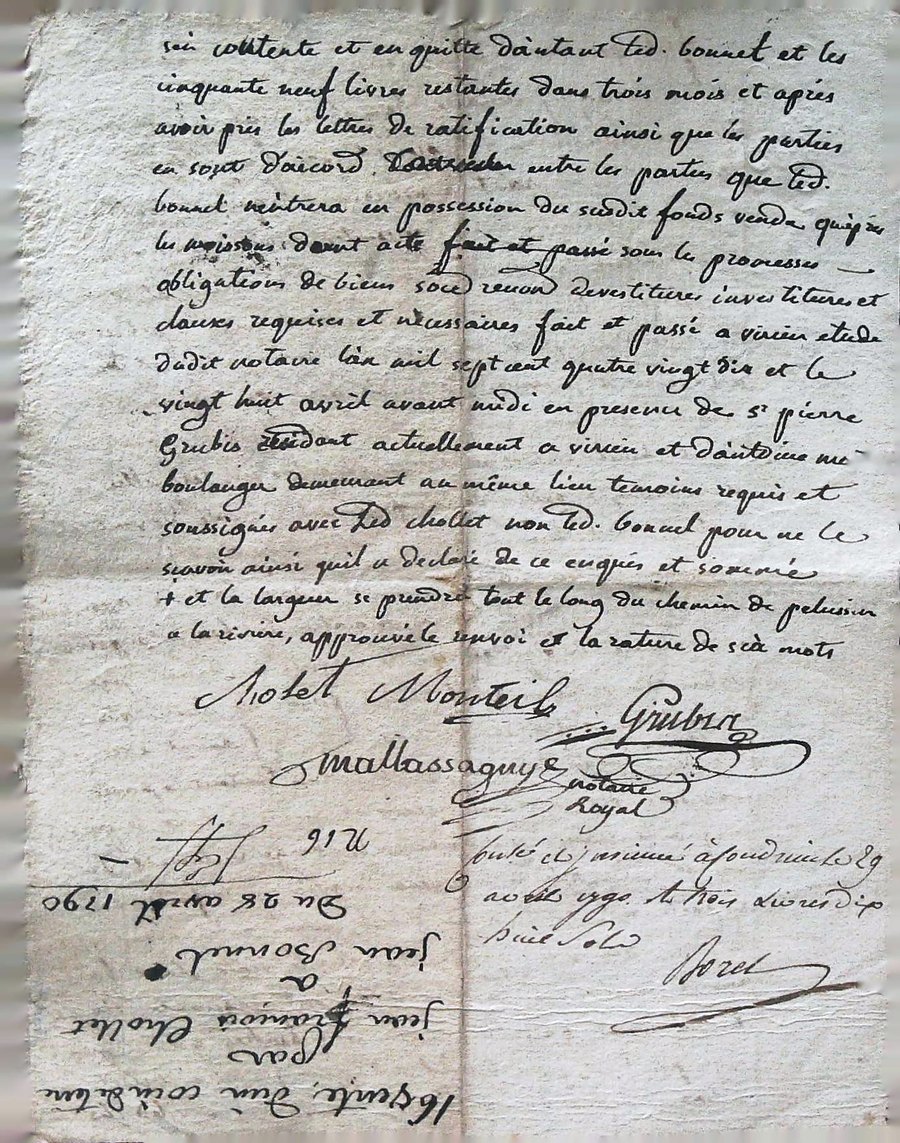 sen contente et en quitte dautant led. bonnet et les
cinquante neuf livres restantes dans trois mois et après
avoir pris les lettres de ratification ainsi que les parties
en sont d'accord. entre les parties que led.
bonnet n'entrera en possession du susdit fonds vendu qu'après
les moissons dont acte fait et passé sous les promesses
obligations de biens renon devestitures investitures et
clauses requises et nécessaires fait et passé a virieu etude
dudit notaire l'an mil sept cent quatre vingt dix et le
vingt huit avril avant midi en presence de sr pierre
Grubis residant actuellement a virieu et d'antoine
boulanger demeurant au même lieu temoins requis et
soussignés avec led chollet non led. bonnet pour ne le
scavoir ainsi quil a declaré de ce enquis et sommé
+ et la largeur se prendra tout le long du chemin de pelussin
a la riviere, approuvé le renvoi et la rature de six mots
Cholet Monteil
Grubis
mallassagnye
notaire
Royal
n 16
à 29
avril 1790. trois Livres dix
huit Sols
Borel
16 vente d'un coin de terre
par
jean françois Chollet
a
jean Bonnet
Du 28 avril 1790